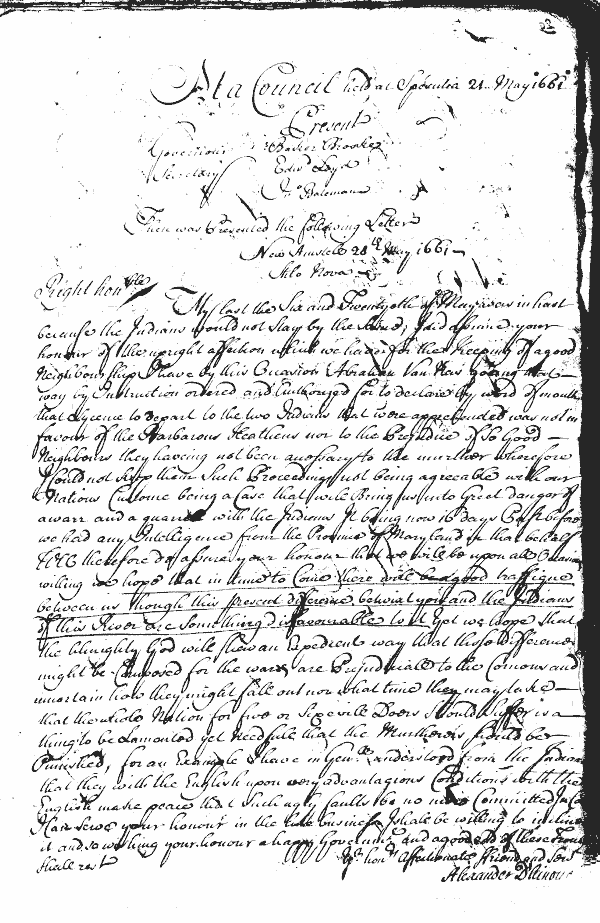 At a Council held at Spesutia 21 May 1661
Present
Governour Baker Brooke
Secretary Edwd Loyd
Jno Bateman
Then was Presented the following Letter
New Amstell 28th May 1661
Stilo Nova
Right honble
My last the Six and Twentyeth of May was in hast
because the Indians would not Stay by the Sound, I did assure your
honour of the upright affection which we have for the Keeping of a good
Neighbourship I have by this Occasion Abraham Van Nas going that
way by Instruction ordered and Authorized for to declare by word of mouth
that Lycence to depart to the two Indians that were apprehended was not in
favour of the Barbarous Heathens nor to the Prejudice of So Good
Neighbours they having not been accessary to the murther wherefore
I Could not keep them Such Proceedings not being agreeable with our
Nations Custome being a Case that will Bring us into Great danger of
a warr and a quarrel with the Indians It being now 16 days Past before
we had any Intelligence from the Province of Maryland in that behalf
Wee therefore do assure your honour that we will be upon all Occasion
willing we hope that in time to Come there will be a good traffique
between us though this present difference betwixt you and the Indians
of this River are Something disfavourable to it Yet we hope that
the Almighty God will show an Expedient way that these differences
might be Composed for the warrs are Prejudiciall to the Comons and
uncertain how they might fall out nor what time they may take
that the whole Nation for five or Six evile Doers Should Suffer is a
thing to be lamented yet needful that the Murtherers should be
Punished, for an Example I have in Genll understood from the Indians
that they with the English upon very advantagious Conditions with the
English make peace that Such ugly faults be no more Committed In Case
I Can serve your honour in the like business I shale be willing to incline
it and so wishing your honour a happy Government and a good end of these Troubles
Shall rest Yor honrs affectionate ffriend and Servt
Alexander D'Hinoyossa